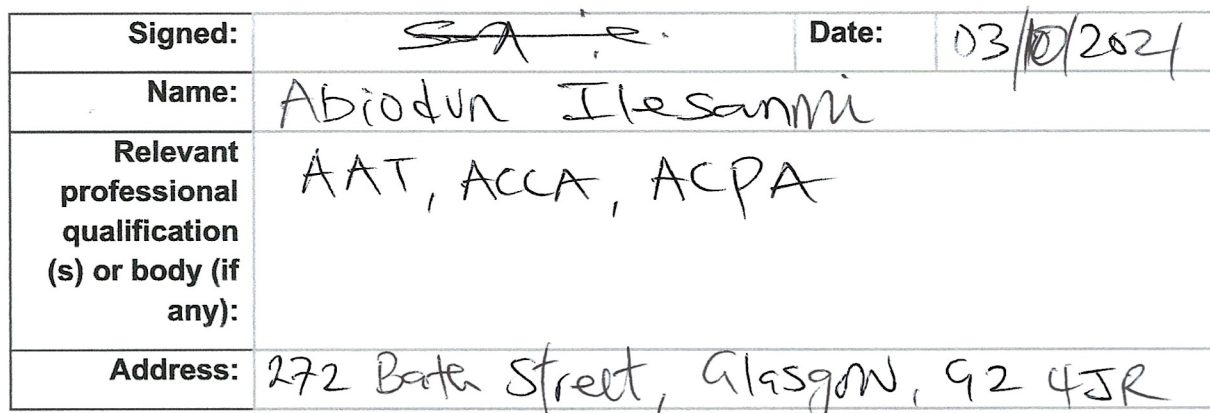 Signed: Date: 03/10/2021
Name: Abiodun Ilesanmi
Relevant professional qualification (s) or body (if any): AAT, ACCA, ACPA
Address: 272 Bath Street, Glasgow, G2 4JR